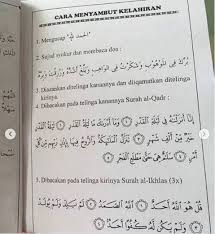 CARA MENYAMBUT KELAHIRAN
1. Mengucap "الحمد لله"
2. Sujud syukur dan membaca doa :
بُورِكَ فِي الْمَوْهُوبِ وَشَكَرْتَ فِي الْوَاهِبِ وَبَلَغَ أَشُدَّهُ وَرُزِقْتَ بِرَّهُ
3. Diazankan ditelinga kanannya dan diiqamatkan ditelinga
kirinya
4. Dibacakan pada telinga kanannya Surah al-Qadr :
إِنَّا أَنزَلْنَاهُ فِي لَيْلَةِ الْقَدْرِ ﴿١﴾ وَمَا أَدْرَاكَ مَا لَيْلَةُ الْقَدْرِ ﴿٢﴾ لَيْلَةُ الْقَدْرِ
خَيْرٌ مِنْ أَلْفِ شَهْرٍ ﴿٣﴾ تَنَزَّلُ الْمَلَائِكَةُ وَالرُّوحُ فِيهَا بِإِذْنِ رَبِّهِمْ مِنْ كُلِّ
أَمْرٍ ﴿٤﴾ سَلَامٌ هِيَ حَتَّى مَطْلَعِ الْفَجْرِ ﴿٥﴾
5. Dibacakan pada telinga kirinya Surah al-Ikhlas (3x)
قُلْ هُوَ اللَّهُ أَحَدٌ ﴿١﴾ اللَّهُ الصَّمَدُ ﴿٢﴾ لَمْ يَلِدْ وَلَمْ يُولَدْ
﴿٣﴾ وَلَمْ يَكُنْ لَهُ كُفُوًا أَحَدٌ ﴿٤﴾